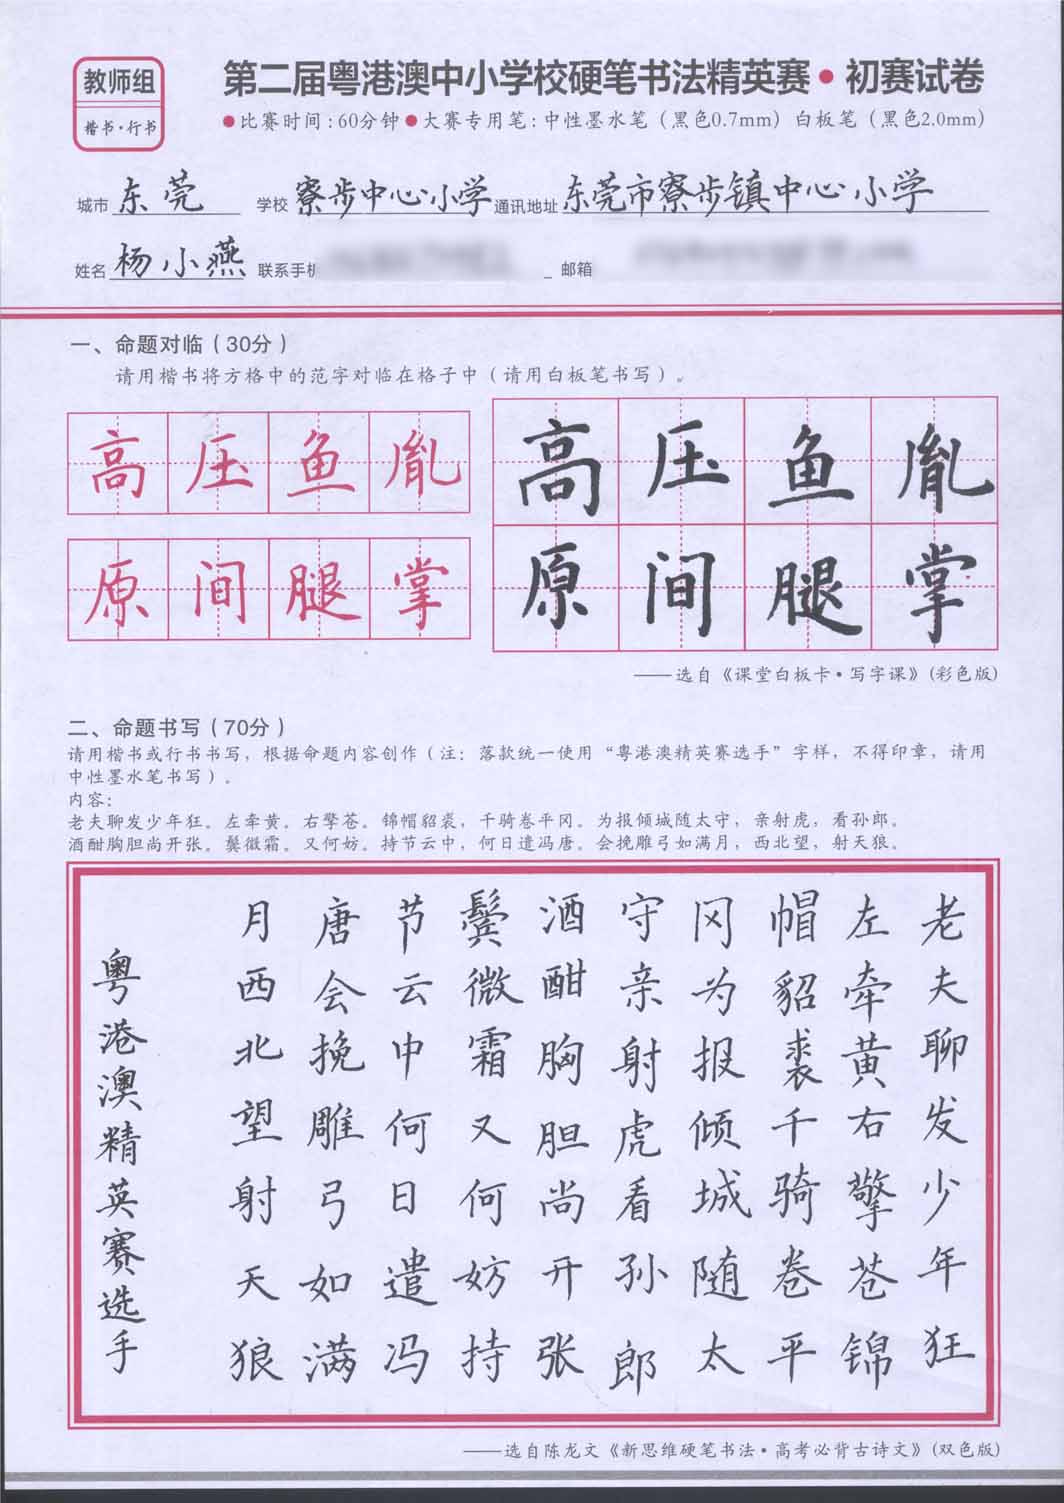 教师组
楷书·行书
第二届粤港澳中小学校硬笔书法精英赛·初赛试卷
●比赛时间:60分钟●大赛专用笔:中性墨水笔(黑色0.7mm)白板笔(黑色2.0mm)
城市 东莞 学校 寮步中心小学 通讯地址 东莞市寮步镇中心小学
姓名 杨小燕 联系手机 邮箱
一、命题对临(30分)
请用楷书将方格中的范字对临在格子中(请用白板笔书写)。
高压鱼胤
原间腿掌
高压鱼胤
原间腿掌
——选自《课堂白板卡·写字课》(彩色版)
二、命题书写(70分)
请用楷书或行书书写,根据命题内容创作(注:落款统一使用“粤港澳精英赛选手”字样,不得印章,请用
中性墨水笔书写)。
内容:
老夫聊发少年狂。左牵黄。右擎苍。锦帽貂裘,千骑卷平冈。为报倾城随太守,亲射虎,看孙郎。
酒酣胸胆尚开张。鬓微霜。又何妨。持节云中,何日遣冯唐。会挽雕弓如满月,西北望,射天狼。
老夫聊发少年狂
左牵黄右擎苍锦
帽貂裘千骑卷平
冈为报倾城随太
守亲射虎看孙郎
酒酣胸胆尚开张
鬓微霜又何妨持
节云中何日遣冯
唐会挽雕弓如满
月西北望射天狼
粤港澳精英赛选手
——选自陈龙文《新思维硬笔书法·高考必背古诗文》(双色版)